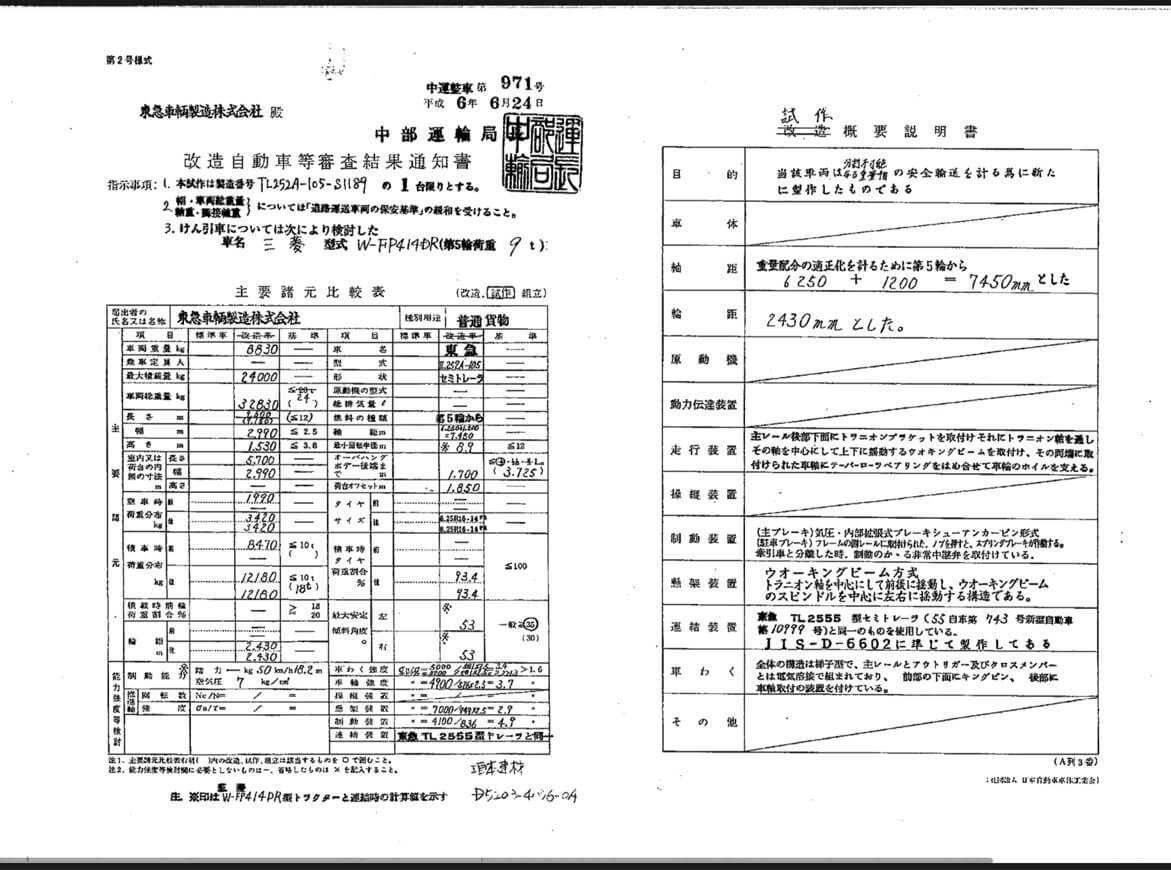 第2号様式
中運整車第 971号
平成 6年 6月24日
東急車輌製造株式会社 殿
中部運輸局
改造自動車等審査結果通知書
指示事項: 1. 本試作は製造番号 TL252A-105-S1189 の 1 台限りとする。
2. 幅・車両総重量 軸重・隣接軸重 については「道路運送車両の保安基準」の緩和を受けること。
3. けん引車については次により検討した
車名 三菱 型式 W-FP414DR (第5輪荷重 9 t):
主要諸元比較表 (改造, 試作 組立)
届出者の氏名又は名称 東急車輌製造株式会社 種別用途 普通貨物
項目 標準車 改造車 基準 項目 標準車 改造車 基準
車両重量 kg 8830 — 車名 東急 —
乗車定員 人 — — 型式 TL252A-105 —
最大積載量 kg 24000 — 形状 セミトレーラ —
車両総重量 kg 32830 ≦20t (24) 原動機の型式 — —
総排気量 ℓ — —
長さ m (≦12) 燃料の種類 —
幅 m 2.990 ≦2.5 軸距 m 第5輪から =7.450
高さ m 1.530 ≦3.8 最小回転半径 m ※ 8.9 ≦12
室内又は荷台の内側の寸法 m 長さ 5.700 —
幅 2.990 —
高さ — —
オーバハング ボデー後端まで m 1.700 (3.725)
荷台オフセット m 1.850
空車時荷重分布 kg 前 1990 —
後 3420 3420 —
タイヤサイズ 前 —
後 8.25R15-14PR 8.25R15-14PR
積車時荷重分布 kg 前 8470 ≦10t ( )
後 12180 12180 ≦10t (18t)
積車時タイヤ荷重割合 % 前 — ≦100
後 93.4 93.4
積載時前輪荷重割合 % — ≧ 18 20
輪距 m 前 —
後 2.430 2.430
最大安定傾斜角度 ° 左 ※ 53 一般≧35 (30)
右 ※ 53
能力強度等検討
制動能力 ※ 踏力 — kg 50 km/h 18.2 m
空気圧 7 kg/c㎡
推進軸 回転数 Nc/N= / =
強度 σn/τ= / =
車わく強度 >1.6
車軸強度 = 3.7
操縦装置
懸架装置 = 2.9
制動装置 = 4100/836 = 4.9
連結装置 東急 TL2555型トレーラと同一
注1. 主要諸元比較表右肩( )内の改造, 試作, 組立は該当するものを○で囲むこと。
注2. 能力強度等検討欄に必要としないものは—, 省略したものは×を記入すること。
三菱
注. ※印は W-FP414DR 型トラクターと連結時の計算値を示す
試作
改造 概要説明書
目的 当該車両は分割不可能なる重量物の安全輸送を計る為に新たに製作したものである
車体
軸距 重量配分の適正化を計るために第5輪から
6250 + 1200 = 7450mm とした
輪距 2430mm とした。
原動機
動力伝達装置
走行装置 主レール後部下面にトラニオンブラケットを取付けそれにトラニオン軸を通し
その軸を中心にして上下に揺動するウオキングビームを取付け、その両端に取
付けられた車軸にテーパーローラベアリングをはめ合せて車輪のホイルを支える。
操縦装置
制動装置 (主ブレーキ) 気圧・内部拡張式ブレーキシューアンカーピン形式
(駐車ブレーキ) フレームの側レールに取付られた、ノブを押すと、スプリングブレーキが作動する。
牽引車と分離した時、制動のかゝる非常中継弁を取付けている。
懸架装置 ウオーキングビーム方式
トラニオン軸を中心にして前後に揺動し、ウオーキングビーム
のスピンドルを中心に左右に揺動する構造である。
連結装置 東急 TL2555 型セミトレーラ (55 自車第 743 号新型自動車
第 10999 号) と同一のものを使用している。
JIS-D-6602に準じて製作してある
車わく 全体の構造は梯子型で、主レールとアウトリガー及びクロスメンバー
とは電気溶接で組まれており、 前部の下面にキングピン、 後部に
車軸取付の装置を付けている。
その他
(A列3番)
(社団法人 日本自動車車体工業会)